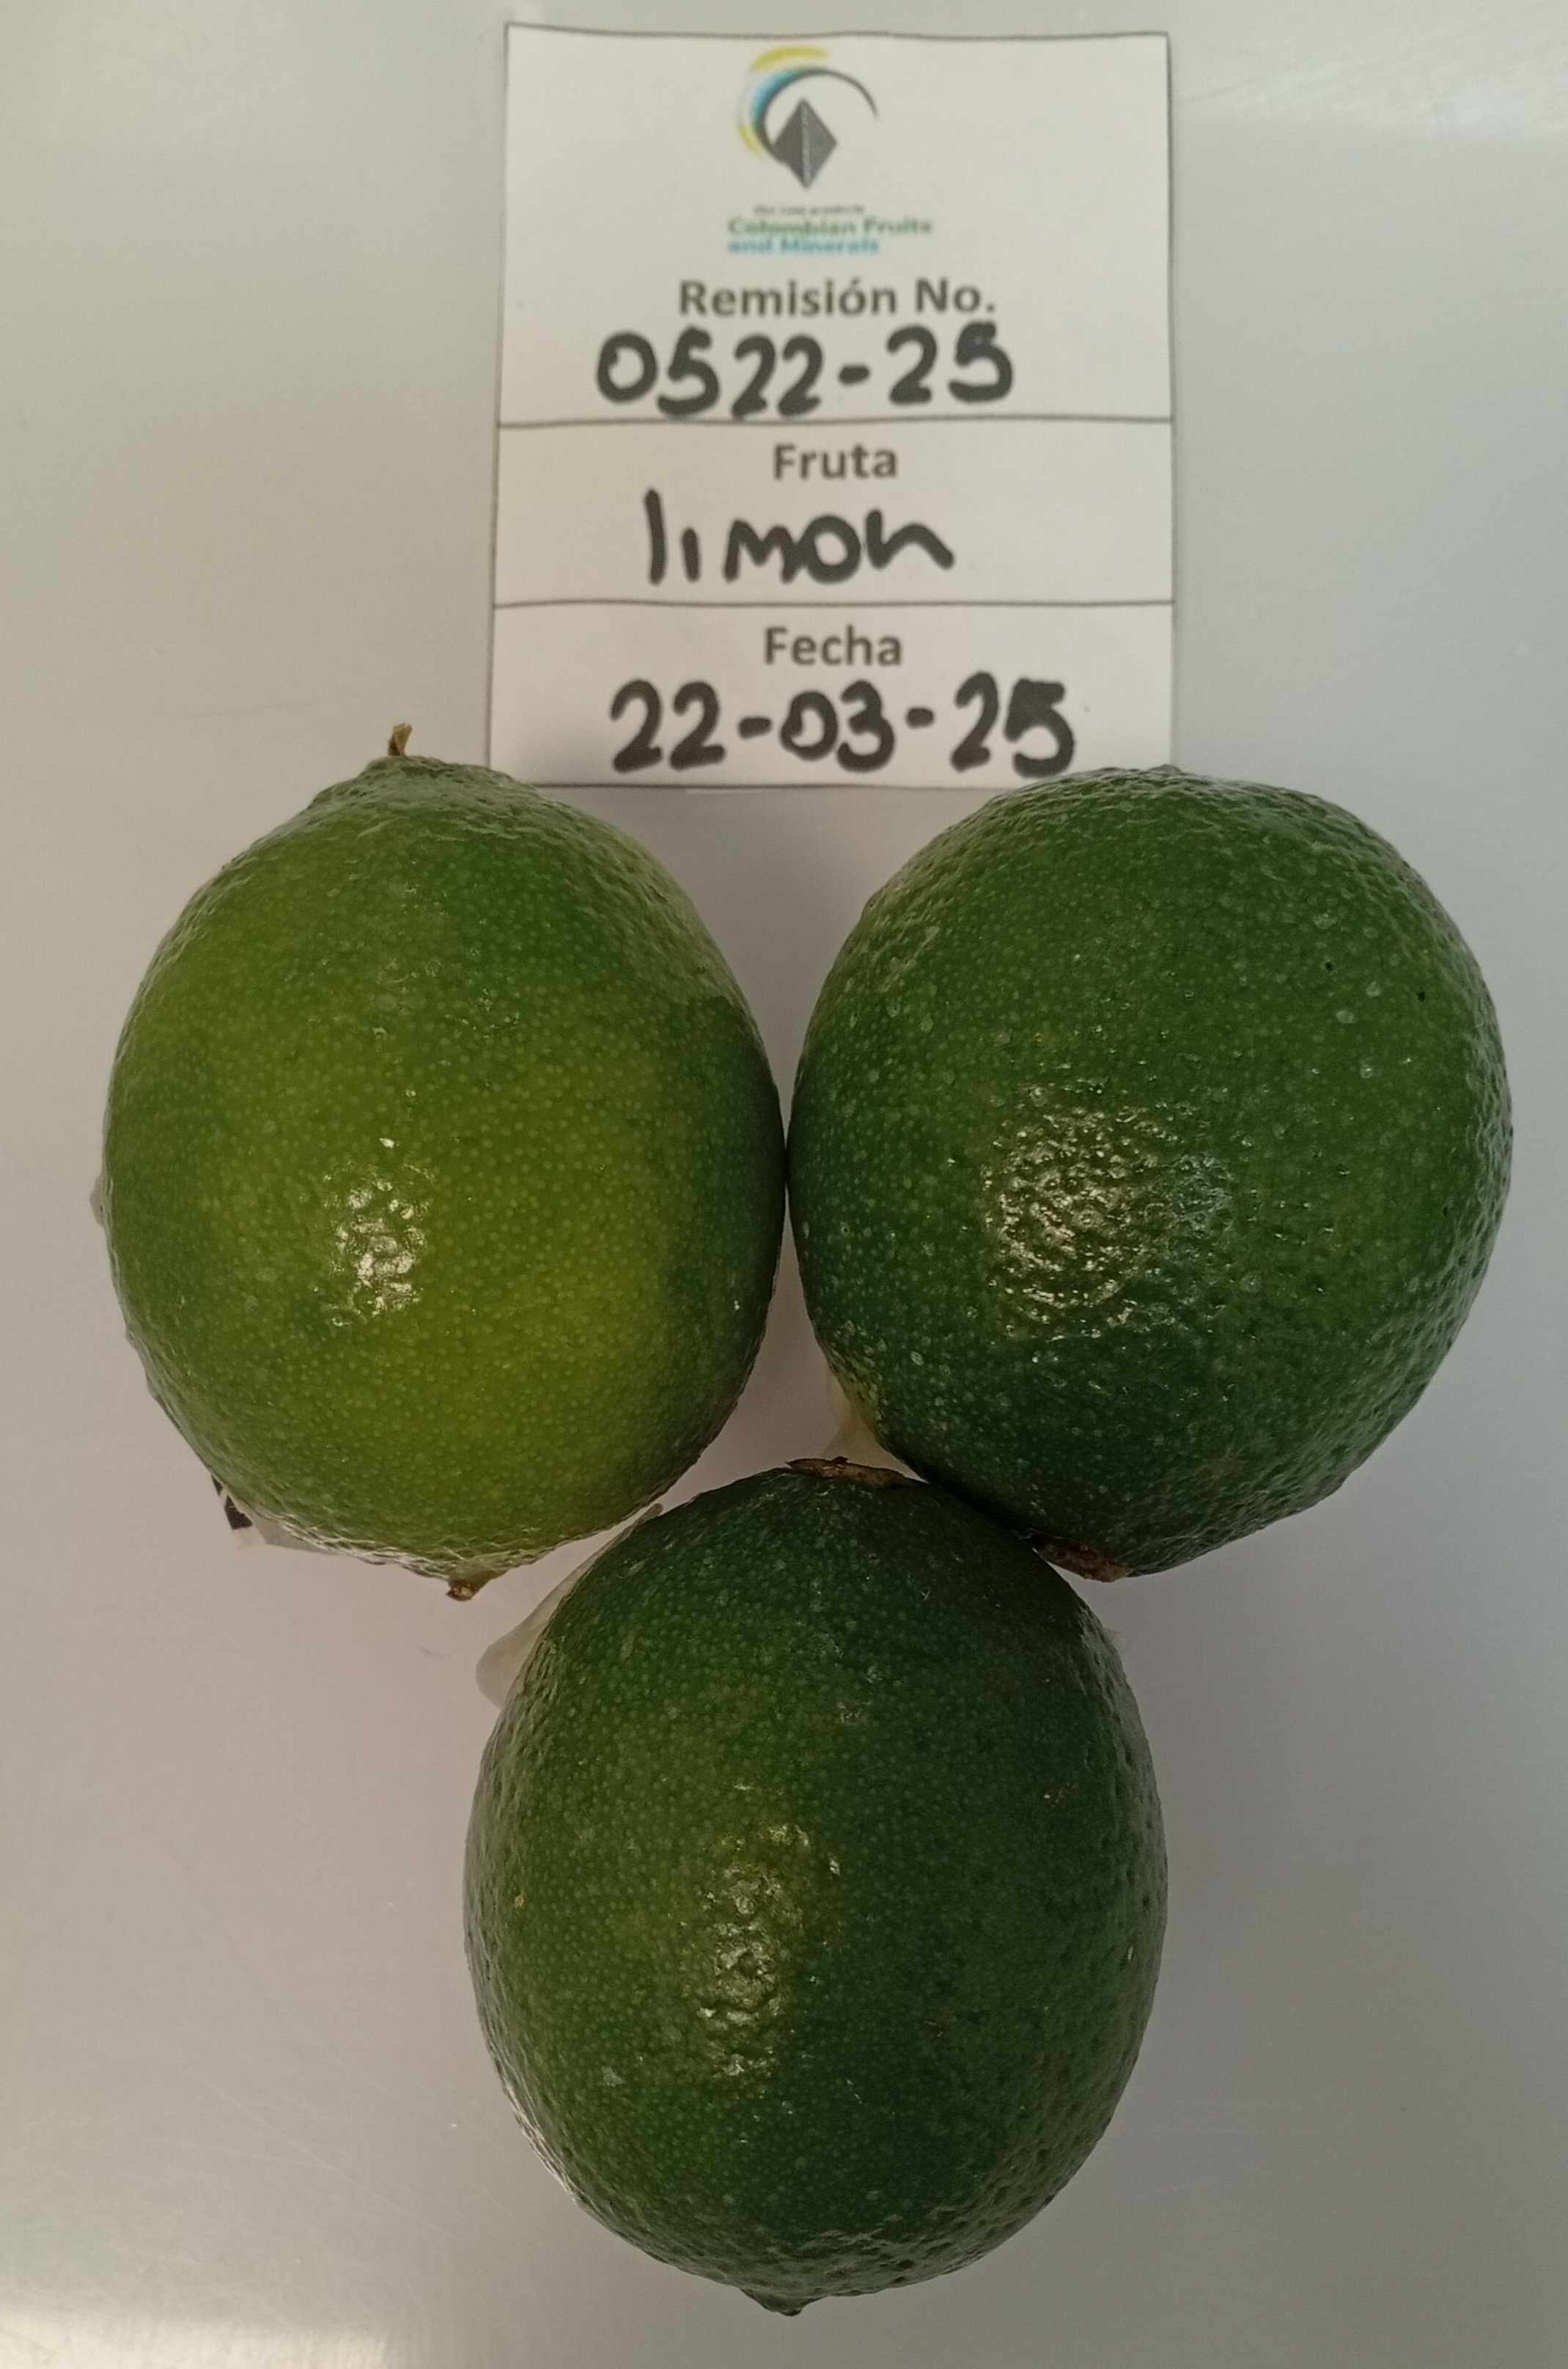 Colombian Fruits
and Minerals
Remisión No.
0522-25
Fruta
limon
Fecha
22-03-25